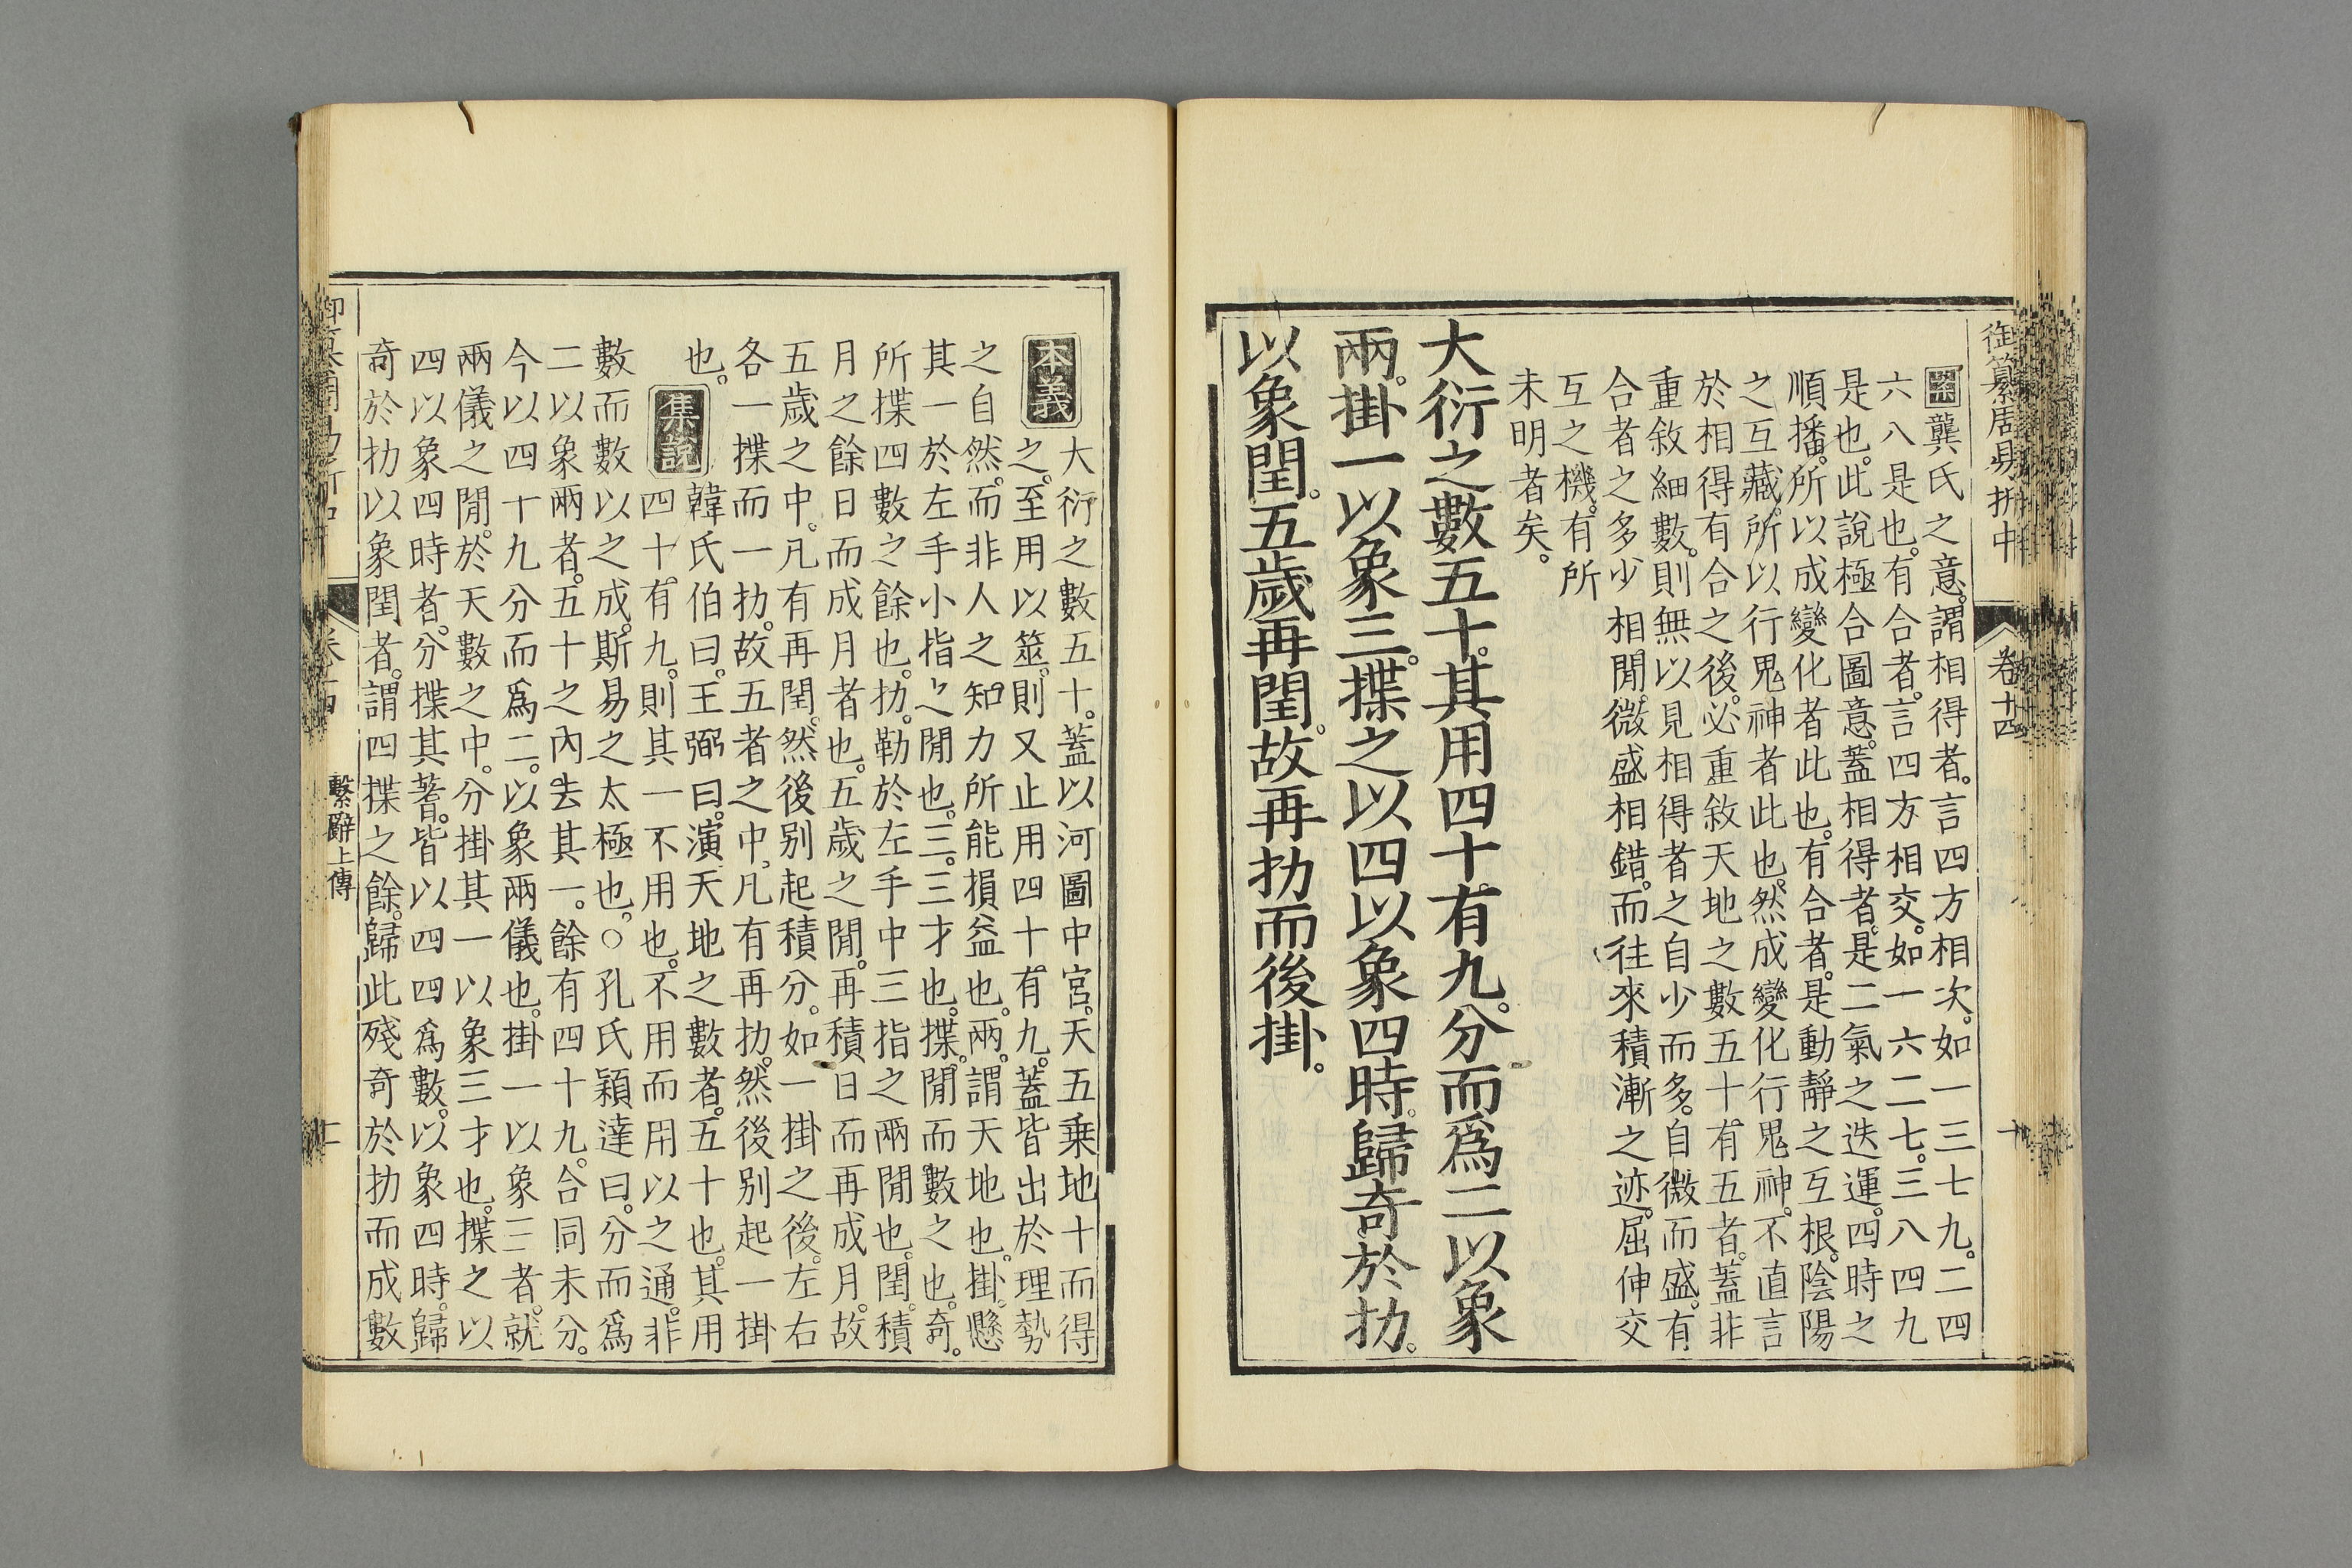 御纂周易折中
卷十四
十
案龔氏之意。謂相得者。言四方相次。如一三七九。二四
六八是也。有合者。言四方相交。如一六二七。三八四九
是也。此說極合圖意。蓋相得者。是二氣之迭運。四時之
順播。所以成變化者此也。有合者。是動靜之互根。陰陽
之互藏。所以行鬼神者此也。然成變化行鬼神。不直言
於相得有合之後。必重敘天地之數五十有五者。蓋非
重敘細數。則無以見相得者之自少而多。自微而盛。有
合者之多少相閒。微盛相錯。而往來積漸之迹。屈伸交
互之機。有所
未明者矣。
大衍之數五十。其用四十有九。分而爲二以象
兩。掛一以象三。揲之以四以象四時。歸奇於扐。
以象閏。五歲再閏。故再扐而後掛。
本義
大衍之數五十。蓋以河圖中宮。天五乗地十而得
之。至用以筮。則又止用四十有九。蓋皆出於理勢
之自然。而非人之知力所能損益也。兩。謂天地也。掛。懸
其一於左手小指之閒也。三。三才也。揲。閒而數之也。奇。
所揲四數之餘也。扐。勒於左手中三指之兩閒也。閏。積
月之餘日而成月者也。五歲之閒。再積日而再成月。故
五歲之中。凡有再閏。然後别起積分。如一掛之後。左右
各一揲而一扐。故五者之中。凡有再扐。然後别起一掛
也。
集說
韓氏伯曰。王弼曰。演天地之數者。五十也。其用
四十有九。則其一不用也。不用而用以之通。非
數而數以之成。斯易之太極也。○孔氏穎達曰。分而爲
二以象兩者。五十之內。去其一。餘有四十九。合同未分。
今以四十九分而爲二。以象兩儀也。掛一以象三者。就
兩儀之閒。於天數之中。分掛其一以象三才也。揲之以
四以象四時者。分揲其蓍。皆以四四爲數。以象四時。歸
奇於扐以象閏者。謂四揲之餘。歸此殘奇於扐而成數
繫辭上傳